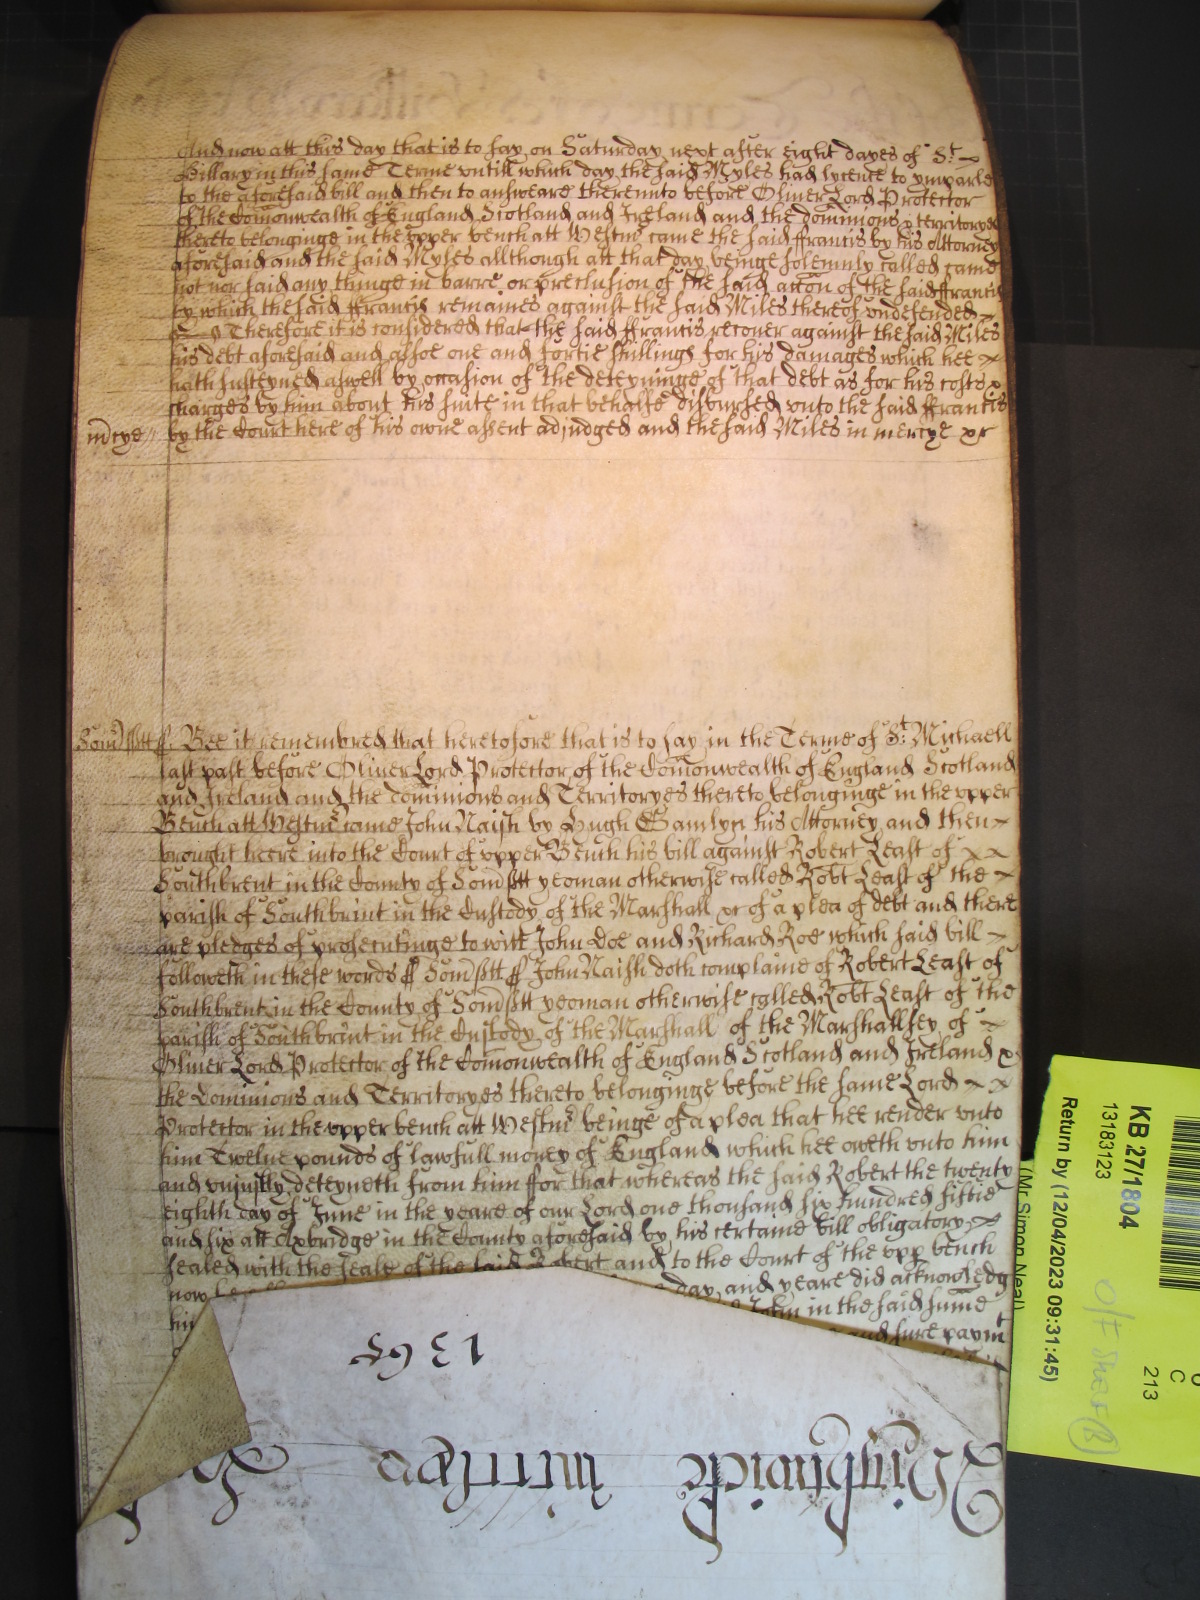 And now att this day that is to say on Saturday next after eight dayes of St
Hillary in this same Terme untill which day the said Myles had lycence to ymparle
to the aforesaid bill and then to answeare thereunto before Oliver Lord Protector
of the Comonwealth of England Scotland and Ireland and the dominions & territoryes
thereto belonginge in the upper bench att Westmr came the said ffrancis by his Attorney
aforesaid and the said Myles allthough att that day beinge solemnly called came
not nor said any thinge in barre or preclusion of the said accon of the said ffrancis
by which the said ffrancis remaines against the said Miles thereof undefended
Therefore it is considered that the said ffrancis recover against the said Miles
his debt aforesaid and alsoe one and fortie shillings for his damages which hee
hath susteyned aswell by occasion of the deteyninge of that debt as for his costs &
charges by him about his suite in that behalfe disbursed unto the said ffrancis
mcye by the Court here of his owne assent adjudged and the said Miles in mercye &c
Somsett ss. Bee it remembred that heretofore that is to say in the Terme of St. Michaell
last past before Oliver Lord Protector of the Comonwealth of England Scotland
and Ireland and the dominions and Territoryes thereto belonginge in the upper
Bench att Westmr came John Naish by Hugh Gamlyn his Attorney and then
brought heere into the Court of upper Bench his bill against Robert Least of
Southbrent in the County of Somsett yeoman otherwise called Robt Least of the
parish of Southbrint in the Custody of the Marshall &c of a plea of debt and there
are pledges of prosecutinge to witt John Doe and Richard Roe which said bill
followeth in these words ss Somsett ss John Naish doth complaine of Robert Least of
Southbrent in the County of Somsett yeoman otherwise called Robt Least of the
parish of Southbrint in the Custody of the Marshall of the Marshallsey of
Oliver Lord Protector of the Comonwealth of England Scotland and Ireland &
the Dominions and Territoryes thereto belonginge before the same Lord
Protector in the upper bench att Westmr beinge of a plea that hee render unto
him Twelve pounds of lawfull money of England which hee oweth unto him
and unjustly deteyneth from him ffor that whereas the said Robert the twenty
eighth day of June in the yeare of our Lord one thousand six hundred fiftie
and six att Axbridge in the County aforesaid by his certaine bill obligatory
sealed with the seale of the said Robert and to the Court of the upp bench
now day and yeare did acknowledg
him John in the said sume
and sure paymt
1365
KB 27/1804
13183123
Return by (12/04/2023 09:31:45)
(Mr Simon Neal)
213
C